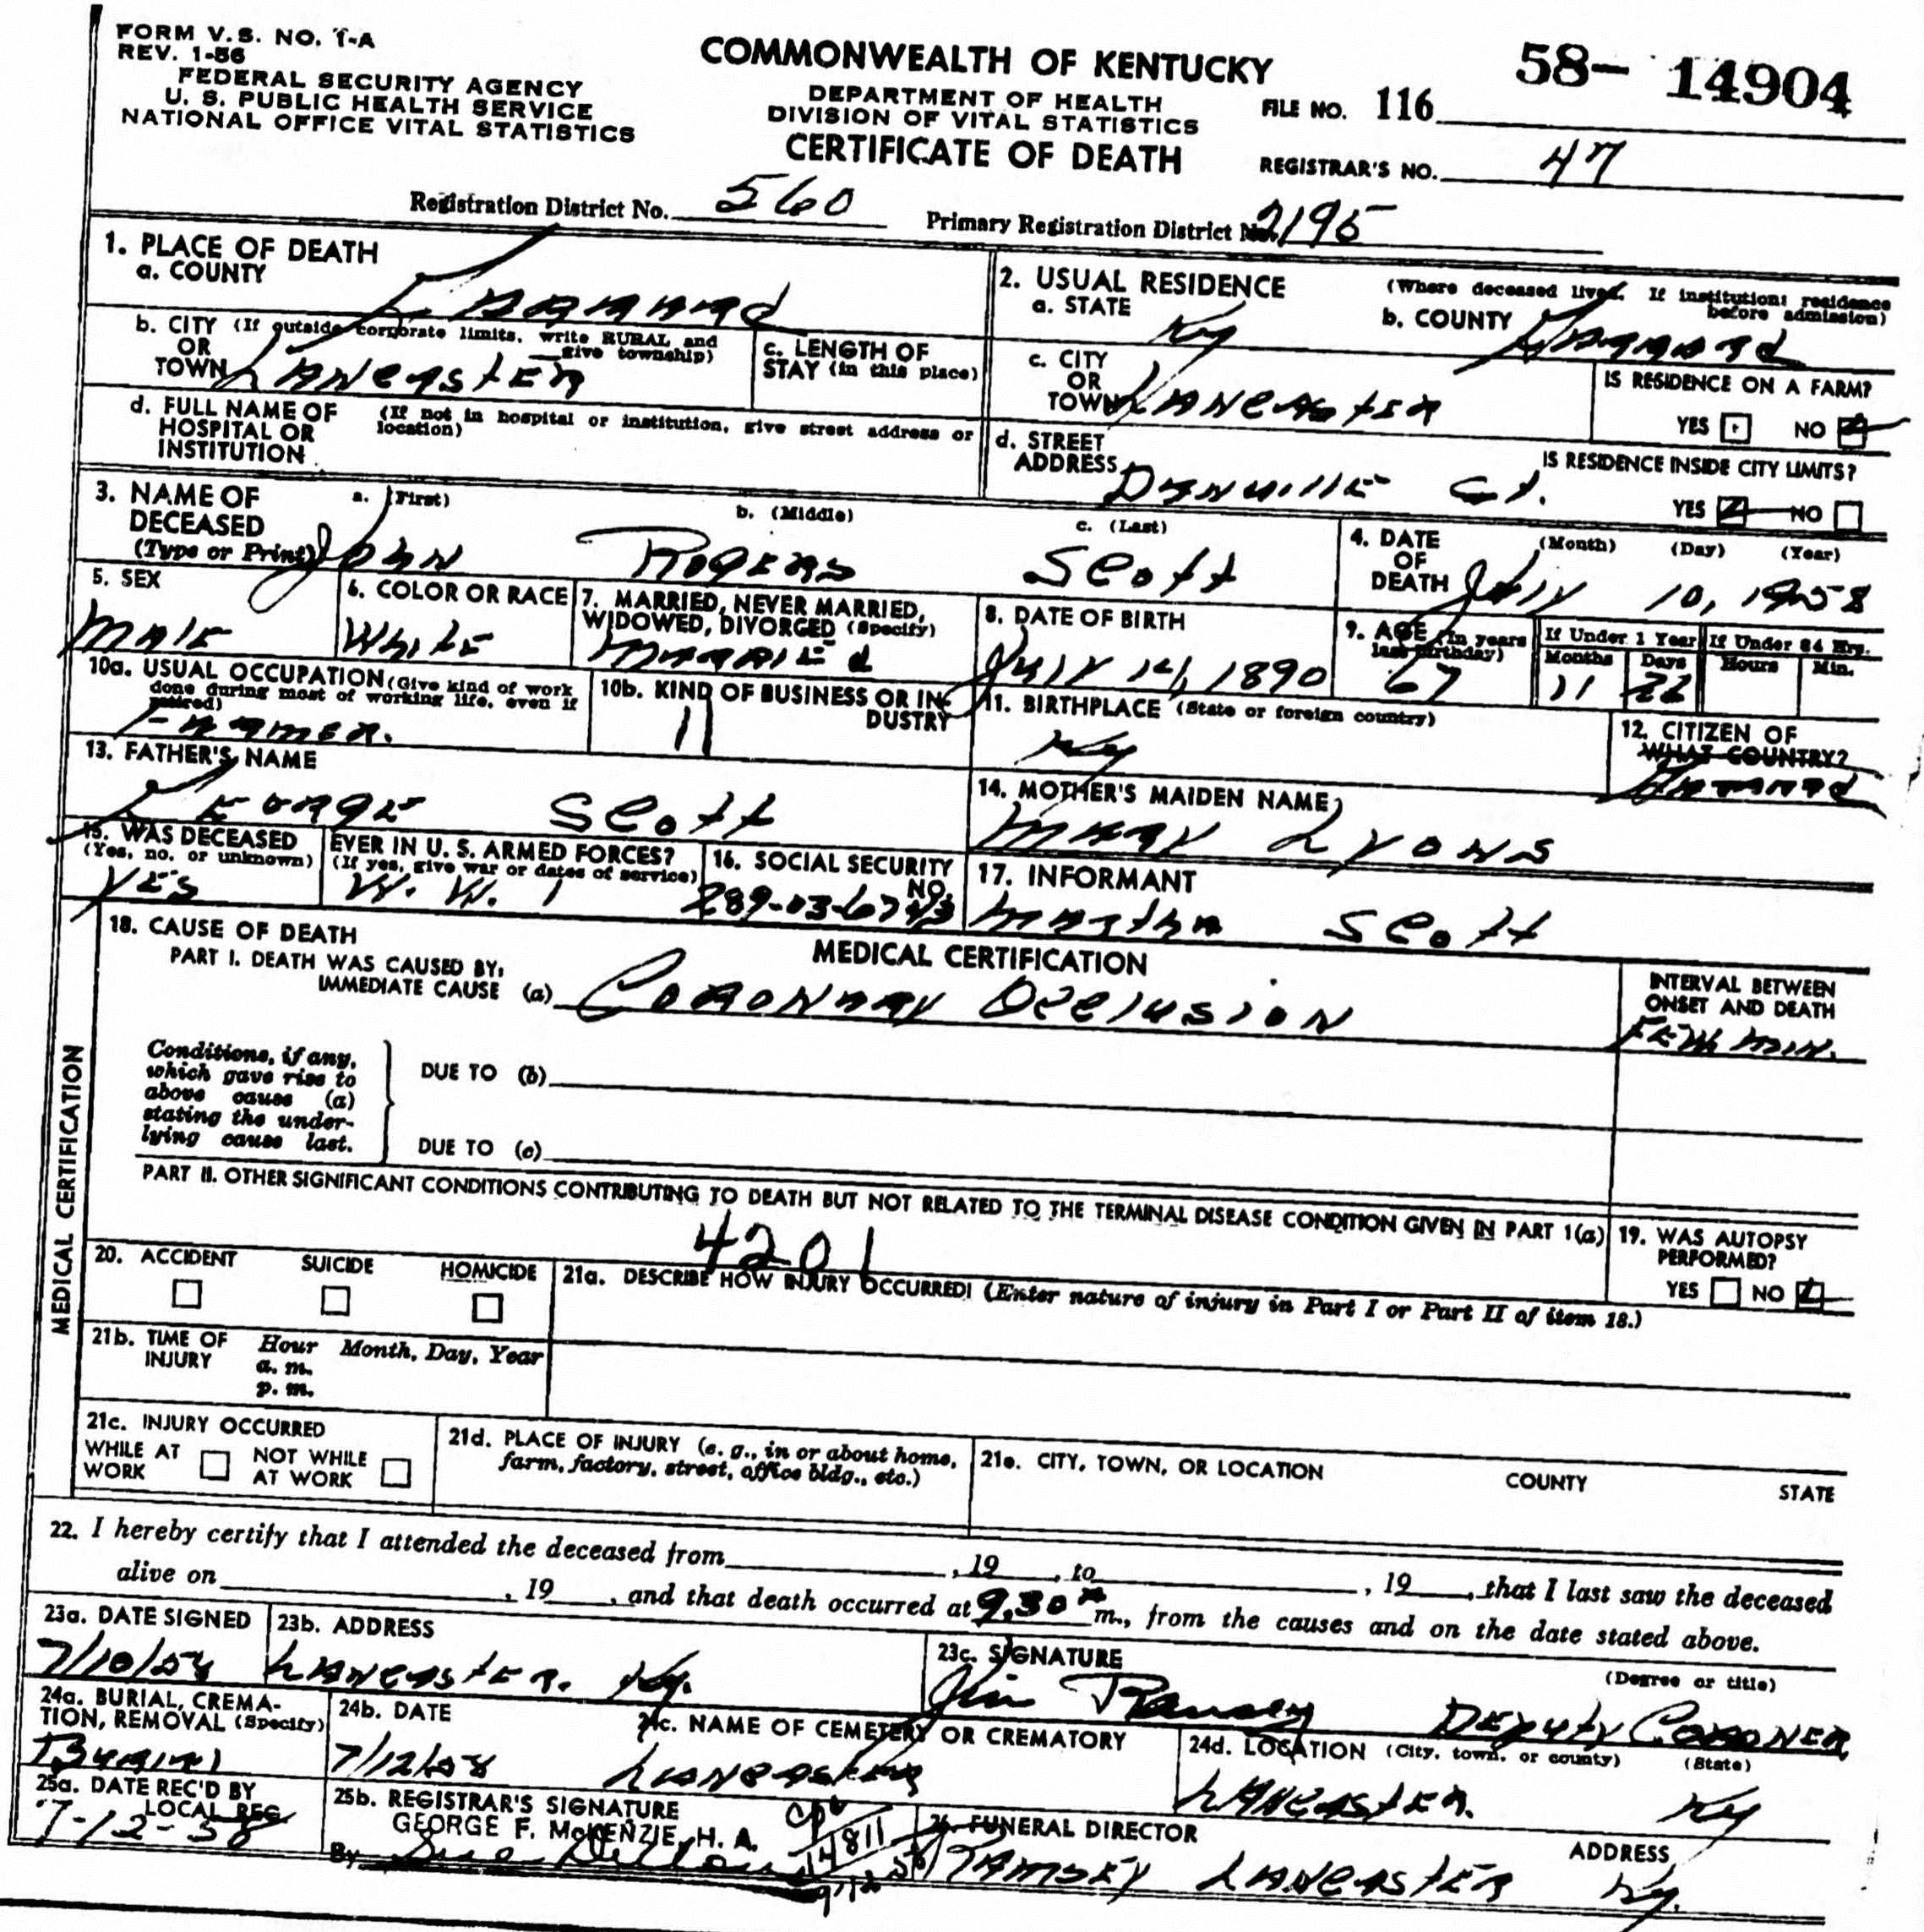 FORM V.S. NO. 1-A
REV. 1-56
FEDERAL SECURITY AGENCY
U. S. PUBLIC HEALTH SERVICE
NATIONAL OFFICE VITAL STATISTICS
COMMONWEALTH OF KENTUCKY
DEPARTMENT OF HEALTH
DIVISION OF VITAL STATISTICS
CERTIFICATE OF DEATH
58- 14904
FILE NO. 116
REGISTRAR'S NO. 47
Registration District No. 560
Primary Registration District No. 2195
1. PLACE OF DEATH
a. COUNTY
Garrard
b. CITY (If outside corporate limits, write RURAL and
OR give township)
TOWN Lancaster
c. LENGTH OF
STAY (in this place)
d. FULL NAME OF (If not in hospital or institution, give street address or
HOSPITAL OR location)
INSTITUTION
2. USUAL RESIDENCE (Where deceased lived. If institution: residence
before admission)
a. STATE Ky
b. COUNTY Garrard
c. CITY
OR
TOWN Lancaster
IS RESIDENCE ON A FARM?
YES NO
d. STREET
ADDRESS Danville St.
IS RESIDENCE INSIDE CITY LIMITS?
YES NO
3. NAME OF a. (First) b. (Middle) c. (Last)
DECEASED
(Type or Print) John Rogers Scott
4. DATE (Month) (Day) (Year)
OF
DEATH July 10, 1958
5. SEX
Male
6. COLOR OR RACE
White
7. MARRIED, NEVER MARRIED,
WIDOWED, DIVORCED (Specify)
Married
8. DATE OF BIRTH
July 14, 1890
9. AGE (In years
last birthday)
67
If Under 1 Year If Under 24 Hrs.
Months Days Hours Min.
11 26
10a. USUAL OCCUPATION (Give kind of work
done during most of working life, even if
retired)
Farmer.
10b. KIND OF BUSINESS OR IN-
DUSTRY
11
11. BIRTHPLACE (State or foreign country)
Ky
12. CITIZEN OF
WHAT COUNTRY?
Garrard
13. FATHER'S NAME
George Scott
14. MOTHER'S MAIDEN NAME
Mary Lyons
15. WAS DECEASED EVER IN U. S. ARMED FORCES?
(Yes, no, or unknown) (If yes, give war or dates of service)
Yes W. W. 1
16. SOCIAL SECURITY
NO.
17. INFORMANT
Martha Scott
MEDICAL CERTIFICATION
18. CAUSE OF DEATH
MEDICAL CERTIFICATION
PART I. DEATH WAS CAUSED BY:
IMMEDIATE CAUSE (a) Coronary Occlusion
INTERVAL BETWEEN
ONSET AND DEATH
Few min.
Conditions, if any,
which gave rise to
above cause (a)
stating the under-
lying cause last.
DUE TO (b)
DUE TO (c)
PART II. OTHER SIGNIFICANT CONDITIONS CONTRIBUTING TO DEATH BUT NOT RELATED TO THE TERMINAL DISEASE CONDITION GIVEN IN PART 1(a)
4201
19. WAS AUTOPSY
PERFORMED?
YES NO
20. ACCIDENT SUICIDE HOMICIDE
21a. DESCRIBE HOW INJURY OCCURRED! (Enter nature of injury in Part I or Part II of item 18.)
21b. TIME OF Hour Month, Day, Year
INJURY a. m.
p. m.
21c. INJURY OCCURRED
WHILE AT NOT WHILE
WORK AT WORK
21d. PLACE OF INJURY (e. g., in or about home,
farm, factory, street, office bldg., etc.)
21e. CITY, TOWN, OR LOCATION COUNTY STATE
22. I hereby certify that I attended the deceased from , 19 , to , 19 , that I last saw the deceased
alive on , 19 , and that death occurred at 9.30 m., from the causes and on the date stated above.
23a. DATE SIGNED
7/10/58
23b. ADDRESS
Lancaster. Ky.
23c. SIGNATURE (Degree or title)
Jim Ramsey Deputy Coroner
24a. BURIAL, CREMA-
TION, REMOVAL (Specify)
Burial
24b. DATE
7/12/58
24c. NAME OF CEMETERY OR CREMATORY
Lancaster
24d. LOCATION (City, town, or county) (State)
Lancaster. Ky
25a. DATE REC'D BY
LOCAL REG.
7-12-58
25b. REGISTRAR'S SIGNATURE
GEORGE F. McKENZIE, H. A.
By Sue
14811
26. FUNERAL DIRECTOR ADDRESS
Ramsey Lancaster Ky.